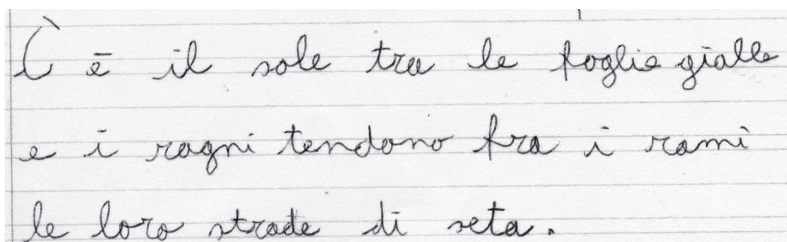 C'è il sole tra le foglie gialle
e i ragni tendono fra i rami
le loro strade di seta.